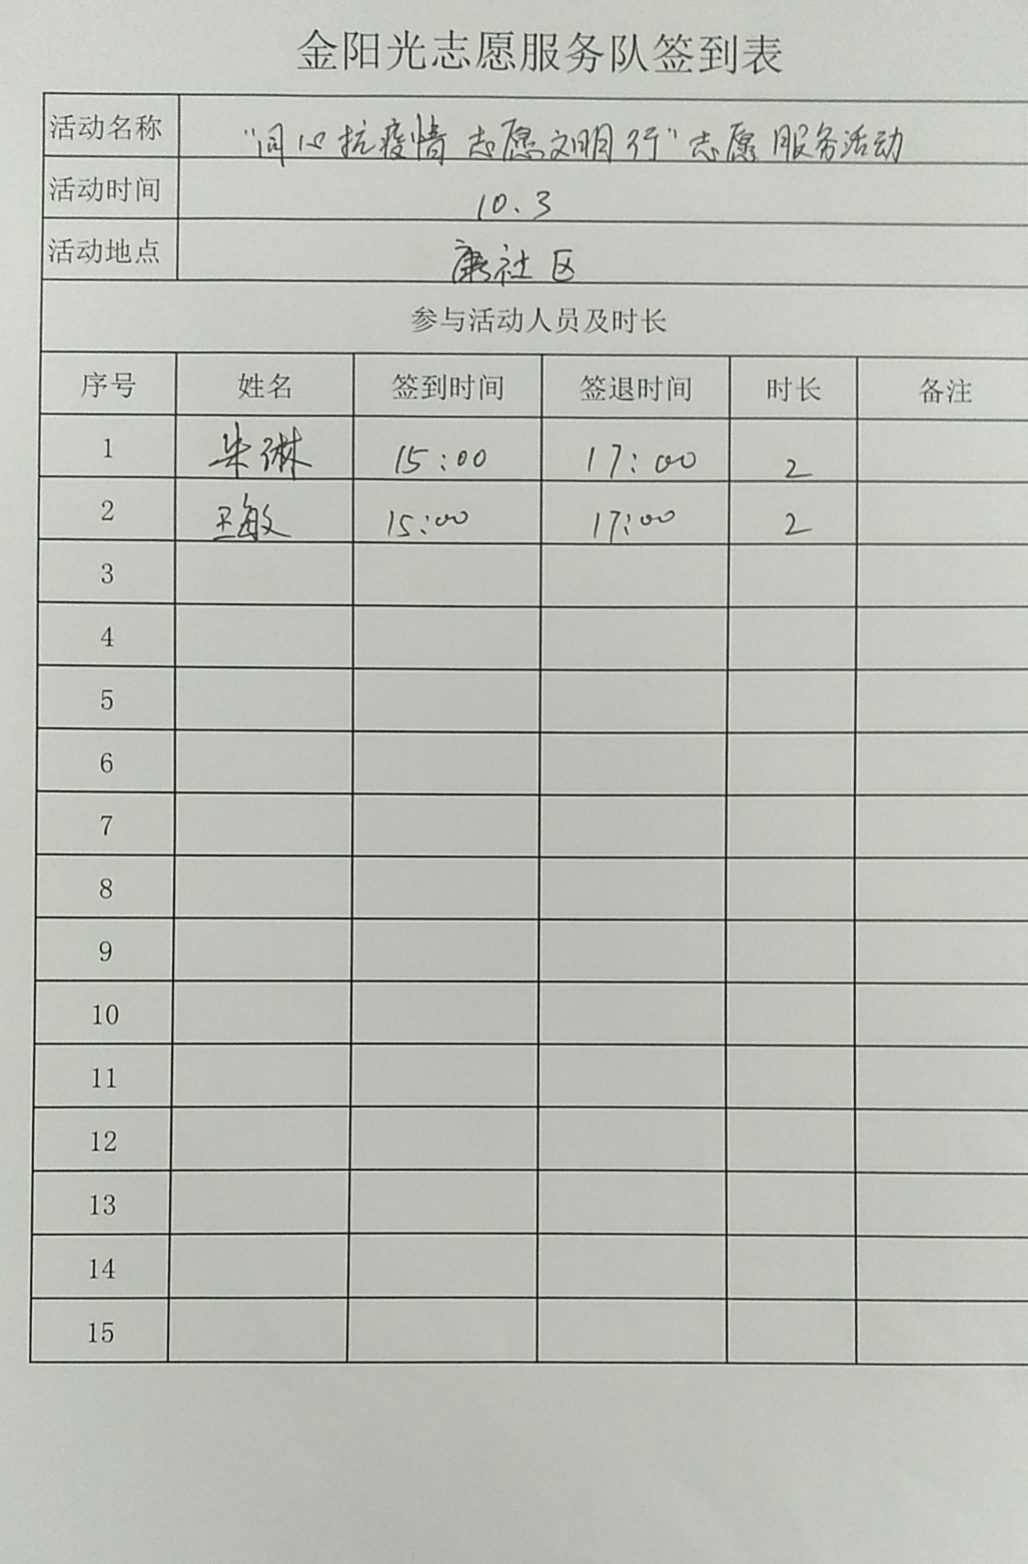 金阳光志愿服务队签到表
活动名称 "同心抗疫情 志愿文明行"志愿服务活动
活动时间 10.3
活动地点 社区
参与活动人员及时长
序号 姓名 签到时间 签退时间 时长 备注
1 朱琳 15:00 17:00 2
2 王敏 15:00 17:00 2
3
4
5
6
7
8
9
10
11
12
13
14
15